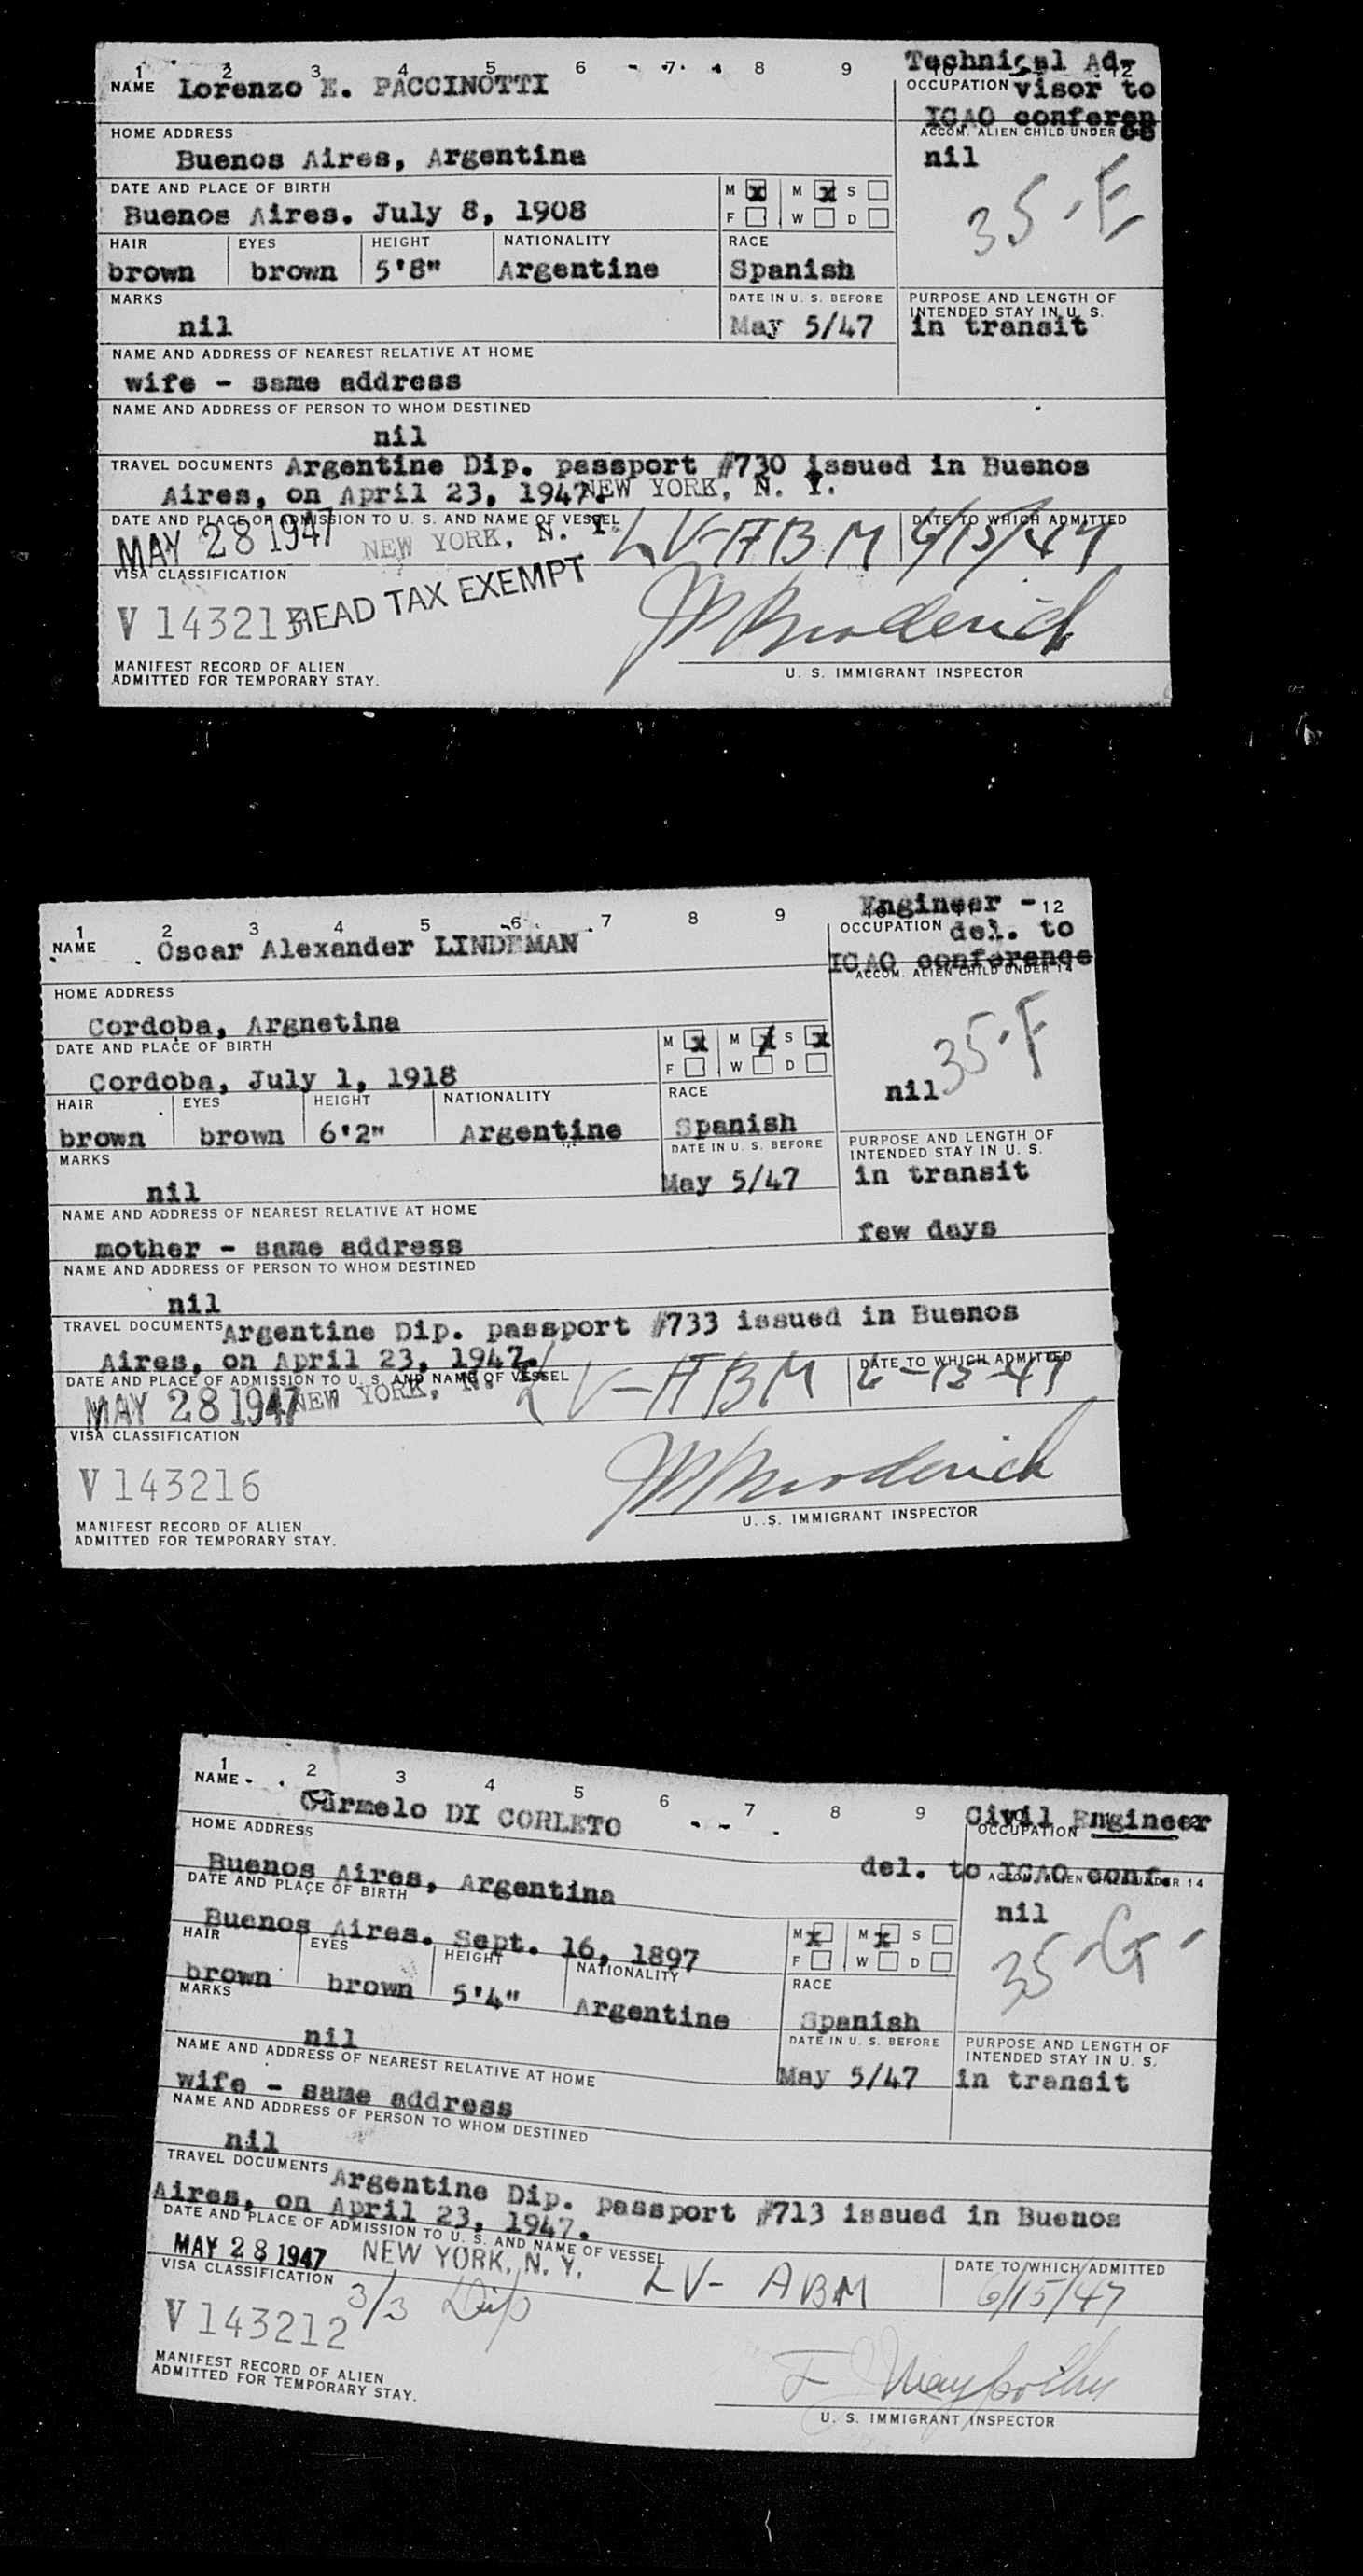 1 2 3 4 5 6 7 8 9 12
Technical Ad-
NAME Lorenzo E. PACCINOTTI
OCCUPATION visor to
ICAO conferen
HOME ADDRESS
ACCOM. ALIEN CHILD UNDER ce
Buenos Aires, Argentina
nil
35-E
DATE AND PLACE OF BIRTH
M x M x S
Buenos Aires. July 8, 1908
F W D
HAIR EYES HEIGHT NATIONALITY RACE
brown brown 5'8" Argentine Spanish
MARKS DATE IN U. S. BEFORE PURPOSE AND LENGTH OF
INTENDED STAY IN U. S.
nil May 5/47 in transit
NAME AND ADDRESS OF NEAREST RELATIVE AT HOME
wife - same address
NAME AND ADDRESS OF PERSON TO WHOM DESTINED
nil
TRAVEL DOCUMENTS Argentine Dip. passport #730 issued in Buenos
Aires, on April 23, 1947. NEW YORK, N. Y.
DATE AND PLACE OF ADMISSION TO U. S. AND NAME OF VESSEL DATE TO WHICH ADMITTED
MAY 28 1947 NEW YORK, N. Y. LV-ABM 6/15/47
VISA CLASSIFICATION
V 143213 HEAD TAX EXEMPT
JP Broderick
MANIFEST RECORD OF ALIEN
ADMITTED FOR TEMPORARY STAY.
U. S. IMMIGRANT INSPECTOR
1 2 3 4 5 6 7 8 9 12
Engineer -
NAME Oscar Alexander LINDEMAN
OCCUPATION del. to
ICAO conference
ACCOM. ALIEN CHILD UNDER 14
HOME ADDRESS
Cordoba, Argnetina
35-F
DATE AND PLACE OF BIRTH
M x M x S x
Cordoba, July 1, 1918
F W D
nil
HAIR EYES HEIGHT NATIONALITY RACE
brown brown 6'2" Argentine Spanish
MARKS DATE IN U. S. BEFORE PURPOSE AND LENGTH OF
INTENDED STAY IN U. S.
nil May 5/47 in transit
NAME AND ADDRESS OF NEAREST RELATIVE AT HOME
few days
mother - same address
NAME AND ADDRESS OF PERSON TO WHOM DESTINED
nil
TRAVEL DOCUMENTS Argentine Dip. passport #733 issued in Buenos
Aires, on April 23, 1947.
DATE AND PLACE OF ADMISSION TO U. S. AND NAME OF VESSEL DATE TO WHICH ADMITTED
MAY 28 1947 NEW YORK, N. Y. LV-ABM 6-15-47
VISA CLASSIFICATION
V 143216
JP Broderick
MANIFEST RECORD OF ALIEN
ADMITTED FOR TEMPORARY STAY.
U. S. IMMIGRANT INSPECTOR
1 2 3 4 5 6 7 8 9
NAME Carmelo DI CORLETO
Civil Engineer
OCCUPATION
HOME ADDRESS
del. to ICAO conf.
ACCOM. ALIEN CHILD UNDER 14
Buenos Aires, Argentina
nil
35-G-
DATE AND PLACE OF BIRTH
M x M x S
Buenos Aires. Sept. 16, 1897
F W D
HAIR EYES HEIGHT NATIONALITY RACE
brown brown 5'4" Argentine Spanish
MARKS DATE IN U. S. BEFORE PURPOSE AND LENGTH OF
INTENDED STAY IN U. S.
nil May 5/47 in transit
NAME AND ADDRESS OF NEAREST RELATIVE AT HOME
wife - same address
NAME AND ADDRESS OF PERSON TO WHOM DESTINED
nil
TRAVEL DOCUMENTS Argentine Dip. passport #713 issued in Buenos
Aires, on April 23, 1947.
DATE AND PLACE OF ADMISSION TO U. S. AND NAME OF VESSEL DATE TO WHICH ADMITTED
MAY 28 1947 NEW YORK, N. Y. LV- ABM 6/15/47
VISA CLASSIFICATION 3/3 Dip
V 143212
MANIFEST RECORD OF ALIEN
ADMITTED FOR TEMPORARY STAY.
U. S. IMMIGRANT INSPECTOR